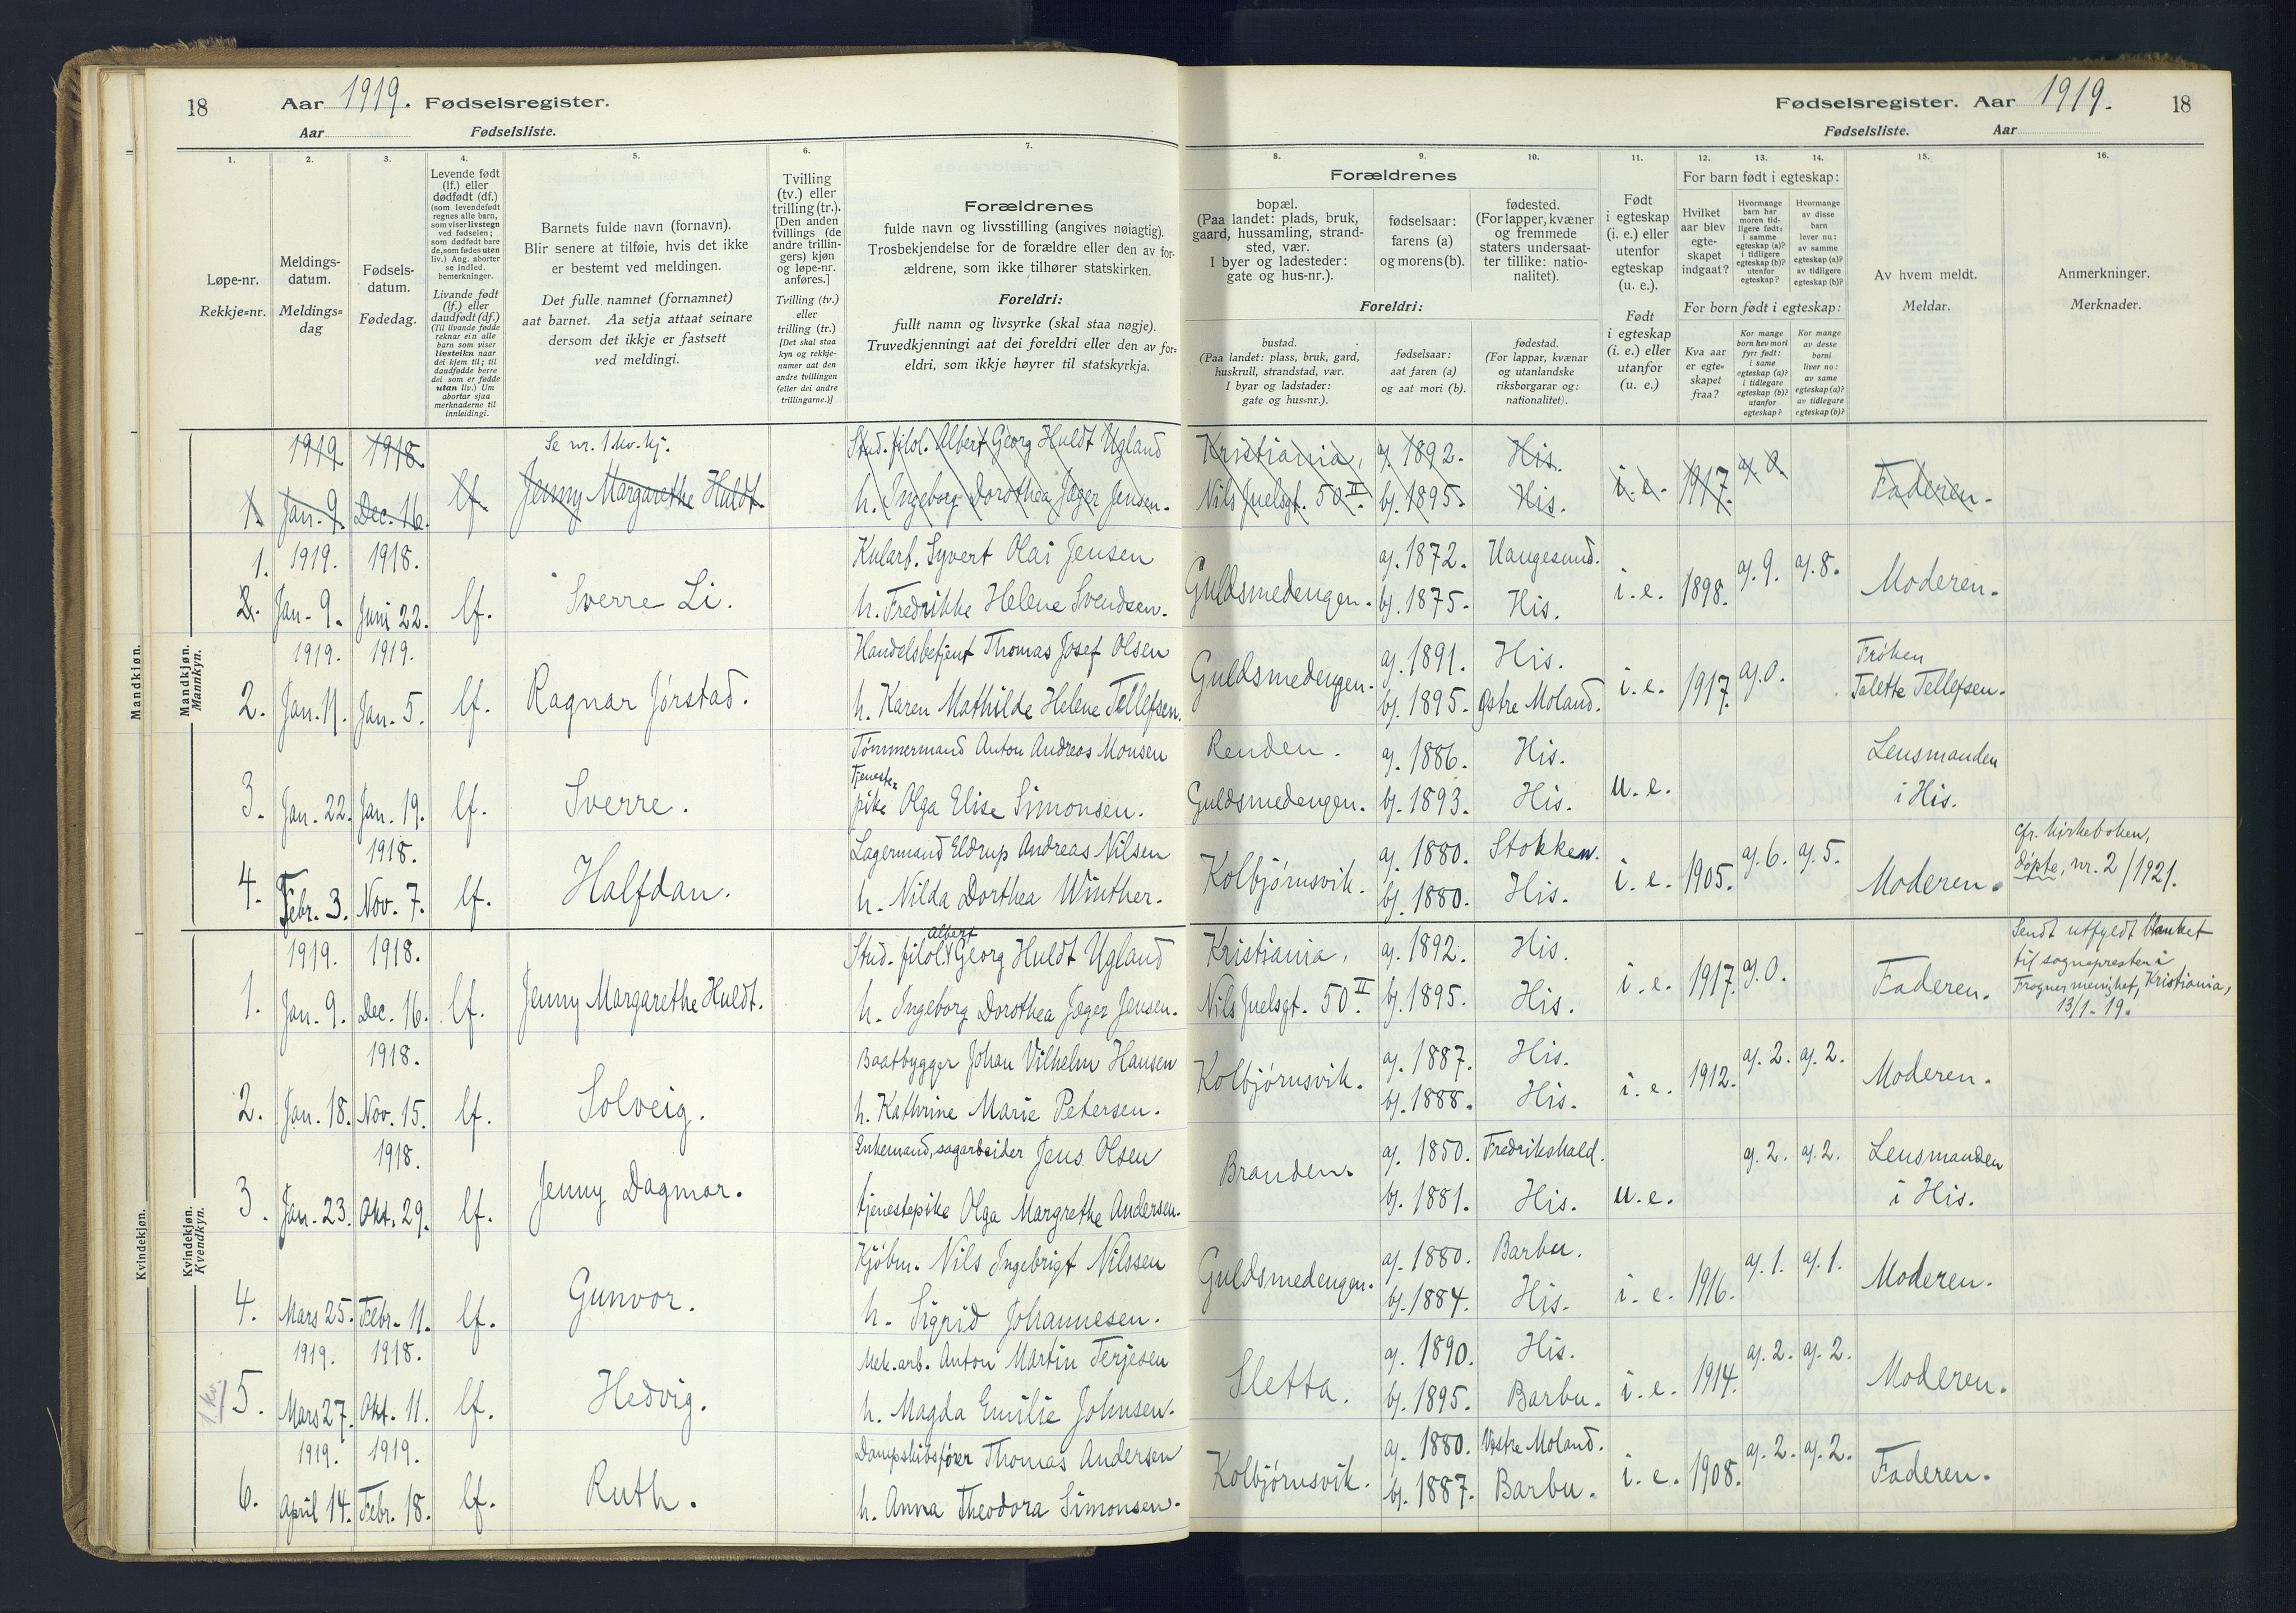 18 Aar 1919. Fødselsregister.
Aar Fødselsliste.
Fødselsregister. Aar 1919. 18
Fødselsliste. Aar
1. 2. 3. 4. 5. 6. 7. 8. 9. 10. 11. 12. 13. 14. 15. 16.
Løpe-nr.
Rekkje=nr.
Meldings-
datum.
Meldings=
dag
Fødsels-
datum.
Fødedag.
Levende født
(lf.) eller
dødfødt (df.)
(som levendefødt
regnes alle barn,
som viser livstegn
ved fødselen;
som dødfødt bare
de, som fødes uten
liv.) Ang. aborter
se indled.
bemerkninger.
Livande født
(lf.) eller
daudfødt (df.)
(Til livande fødde
reknar ein alle
barn som viser
livsteikn naar
dei kjem til; til
daudfødde berre
dei som er fødde
utan liv.) Um
abortar sjaa
merknaderne til
innleidingi.
Barnets fulde navn (fornavn).
Blir senere at tilføie, hvis det ikke
er bestemt ved meldingen.
Det fulle namnet (fornamnet)
aat barnet. Aa setja attaat seinare
dersom det ikkje er fastsett
ved meldingi.
Tvilling
(tv.) eller
trilling (tr.).
[Den anden
tvillings (de
andre trillin-
gers) kjøn
og løpe-nr.
anføres.]
Tvilling (tv.)
eller
trilling (tr.)
[Det skal staa
kyn og rekkje-
numer aat den
andre tvillingen
(eller dei andre
trillingarne.)]
Forældrenes
fulde navn og livsstilling (angives nøiagtig).
Trosbekjendelse for de forældre eller den av for-
ældrene, som ikke tilhører statskirken.
Foreldri:
fullt namn og livsyrke (skal staa nøgje).
Truvedkjenningi aat dei foreldri eller den av for=
eldri, som ikkje høyrer til statskyrkja.
Forældrenes
bopæl.
(Paa landet: plads, bruk,
gaard, hussamling, strand-
sted, vær.
I byer og ladesteder:
gate og hus-nr.).
fødselsaar:
farens (a)
og morens (b).
fødested.
(For lapper, kvæner
og fremmede
staters undersaat-
ter tillike: natio-
nalitet).
Foreldri:
bustad.
(Paa landet: plass, bruk, gard,
huskrull, strandstad, vær.
I byar og ladstader:
gate og hus=nr.).
fødselsaar:
aat faren (a)
og aat mori (b).
fødestad.
(For lappar, kvænar
og utanlandske
riksborgarar og:
nationalitet).
Født
i egteskap
(i. e.) eller
utenfor
egteskap
(u. e.).
Født
i egteskap
(i. e.) eller
utanfor
(u. e.)
For barn født i egteskap:
Hvilket
aar blev
egte-
skapet
indgaat?
Hvormange
barn har
moren tid-
ligere født:
i samme
egteskap (a)?
i tidligere
egteskap (b)?
utenfor
egteskap?
Hvormange
av disse
barn
lever nu:
av samme
egteskap (a)?
av tidligere
egteskap (b)?
For born født i egteskap:
Kva aar
er egte=
skapet
fraa?
Kor mange
born hev mori
fyrr født:
i same
egteskap (a)?
i tidlegare
egteskap (b)?
utanfor
egteskap?
Kor mange
av desse
borni
liver no:
av same
egteskap (a)?
av tidlegare
egteskap (b)?
Av hvem meldt.
Meldar.
Anmerkninger.
Merknader.
Mandkjøn.
Mandkjøn.
Mannkyn.
1919 1918. Se nr. 1 kv.kj. Stud. filol. Albert Georg Huldt Ugland Kristiania, a). 1892. His. a). 0.
1. Jan. 9. Dec. 16. lf. Jenny Margarethe Huldt. h. Ingeborg Dorothea Jæger Jensen. Nils Juelsgt. 50 II. b). 1895. His. i. e. 1917. Faderen.
1. 1919. 1918. Kularb. Syvert Olai Jensen a). 1872. Haugesund. a). 9. a). 8.
2. Jan. 9. Juni 22. lf. Sverre Li. h. Fredrikke Helene Svendsen. Guldsmedengen. b). 1875. His. i. e. 1898. Moderen.
1919. 1919. Handelsbetjent Thomas Josef Olsen a). 1891. His. a). 0. Frøken
2. Jan. 11. Jan. 5. lf. Ragnar Jørstad. h. Karen Mathilde Helene Tellefsen. Guldsmedengen. b). 1895. Østre Moland. i. e. 1917. Talette Tellefsen.
Tømmermand Anton Andreas Monsen Renden. a). 1886. His. Lensmanden
3. Jan. 22. Jan. 19. lf. Sverre. Tjeneste=
pike Olga Elise Simonsen. Guldsmedengen. b). 1893. His. u. e. i His.
1918. Lagermand Eldrup Andreas Nilsen a). 1880. Stokken. a). 6. a). 5. cfr. kirkeboken,
4. Febr. 3. Nov. 7. lf. Halfdan. h. Nilda Dorthea Winther. Kolbjørnsvik. b). 1880. His. i. e. 1905. Moderen. døpte, nr. 2/1921.
Kvindekjøn.
Kvindekjøn.
Kvendkyn.
1919. 1918. Stud. filol. Albert Georg Huldt Ugland Kristiania, a). 1892. His. a). 0. Sendt utfyldt blanket
til sognepresten i
1. Jan. 9. Dec. 16. lf. Jenny Margarethe Huldt. h. Ingeborg Dorothea Jæger Jensen. Nils Juelsgt. 50 II. b). 1895. His. i. e. 1917. Faderen. Frogner menighet, Kristiania,
13/1-19.
1918. Baatbygger Johan Vilhelm Hansen a). 1887. His. a). 2. a). 2.
2. Jan. 18. Nov. 15. lf. Solveig. h. Kathrine Marie Petersen. Kolbjørnsvik. b). 1888. His. i. e. 1912. Moderen.
1918. Enkemand, sagarbeider Jens Olsen a). 1850. Fredrikshald. a). 2. a). 2. Lensmanden
3. Jan. 23. Okt. 29. lf. Jenny Dagmar. tjenestepike Olga Margrethe Andersen. Branden. b). 1881. His. u. e. i His.
Kjøbm. Nils Ingebrigt Nilssen a). 1880. Barbu. a). 1. a). 1.
4. Mars 25. Febr. 11. lf. Gunvor. h. Sigrid Johannesen. Guldsmedengen. b). 1884. His. i. e. 1916. Moderen.
1919. 1918. Mek. arb. Anton Martin Terjesen a). 1890. His. a). 2. a). 2.
1 kv. 5. Mars 27. Okt. 11. lf. Hedvig. h. Magda Emilie Johnsen. Sletta. b). 1895. Barbu. i. e. 1914. Moderen.
1919. 1919. Dampskibsfører Thomas Andersen a). 1880. Vestre Moland. a). 2. a). 2.
6. April 14. Febr. 18. lf. Ruth. h. Anna Theodora Simonsen. Kolbjørnsvik. b). 1887. Barbu. i. e. 1908. Faderen.